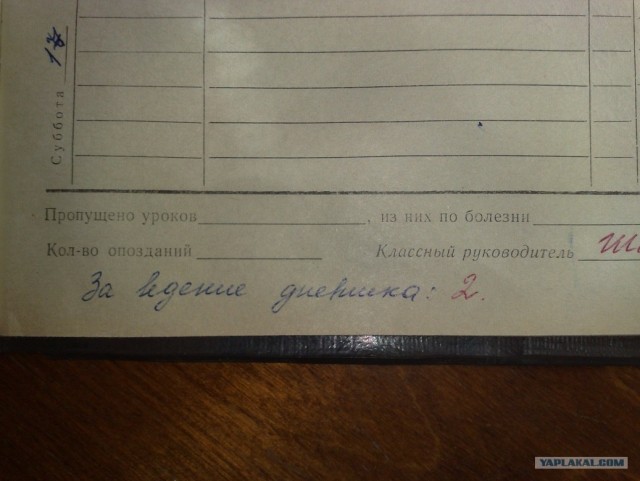 Суббота 17
Пропущено уроков , из них по болезни
Кол-во опозданий Классный руководитель
За ведение дневника: 2.
YAPLAKAL.COM